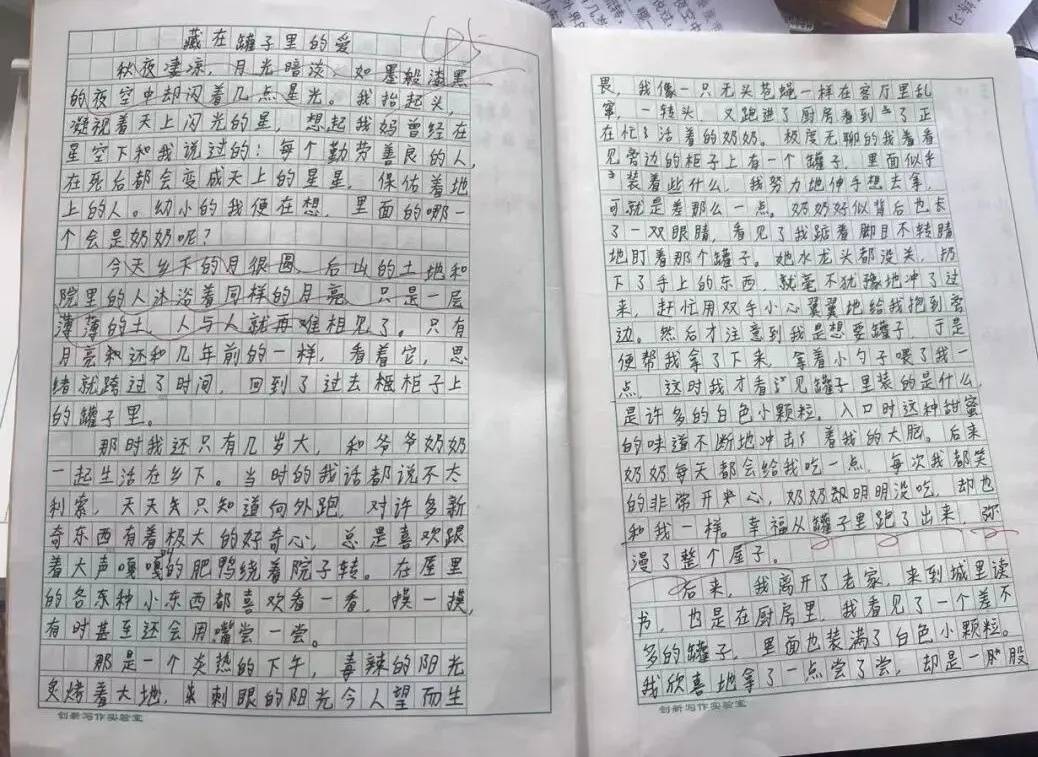 藏在罐子里的爱
秋夜凄凉，月光暗淡，如墨般漆黑
的夜空中却闪着几点星光。我抬起头，
凝视着天上闪光的星，想起我妈曾经在
星空下和我说过的：每个勤劳善良的人，
在死后都会变成天上的星星，保佑着地
上的人。幼小的我便在想，里面的哪一
个会是奶奶呢？
今天乡下的月很圆，后山的土地和
院里的人沐浴着同样的月亮，只是一层
薄薄的土，人与人就再难相见了。只有
月亮和还和几年前的一样，看着它，思
绪就跨过了时间，回到了过去柜子上
的罐子里。
那时我还只有几岁大，和爷爷奶奶
一起生活在乡下。当时的我话都说不太
利索，天天只知道向外跑，对许多新
奇东西有着极大的好奇心，总是喜欢跟
着大声嘎嘎叫的肥鸭绕着院子转。在屋里
的各种小东西都喜欢看一看，摸一摸，
有时甚至还会用嘴尝一尝。
那是一个炎热的下午，毒辣的阳光
炙烤着大地，刺眼的阳光令人望而生
创新写作实验室
畏，我像一只无头苍蝇一样在客厅里乱
窜，一转头，又跑进了厨房看到了正
在忙活着的奶奶。极度无聊的我看着
见旁边的柜子上有一个罐子，里面似乎
装着些什么，我努力地伸手想去拿，
可就是差那么一点。奶奶好似背后也长
了一双眼睛，看见了我踮着脚目不转睛
地盯着那个罐子。她水龙头都没关，扔
下了手上的东西，就毫不犹豫地冲了过
来，赶忙用双手小心翼翼地给我抱到旁
边。然后才注意到我是想要罐子，于是
便帮我拿了下来，拿着小勺子喂了我一
点，这时我才看见罐子里装的是什么，
是许多的白色小颗粒，入口时这种甜蜜
的味道不断地冲击着我的大脑。后来
奶奶每天都会给我吃一点，每次我都笑
的非常开心，奶奶明明没吃，却也
和我一样。幸福从罐子里跑了出来，弥
漫了整个屋子。
后来，我离开了老家，来到城里读
书，也是在厨房里，我看见了一个差不
多的罐子，里面也装满了白色小颗粒。
我欣喜地拿了一点尝了尝，却是一股
创新写作实验室